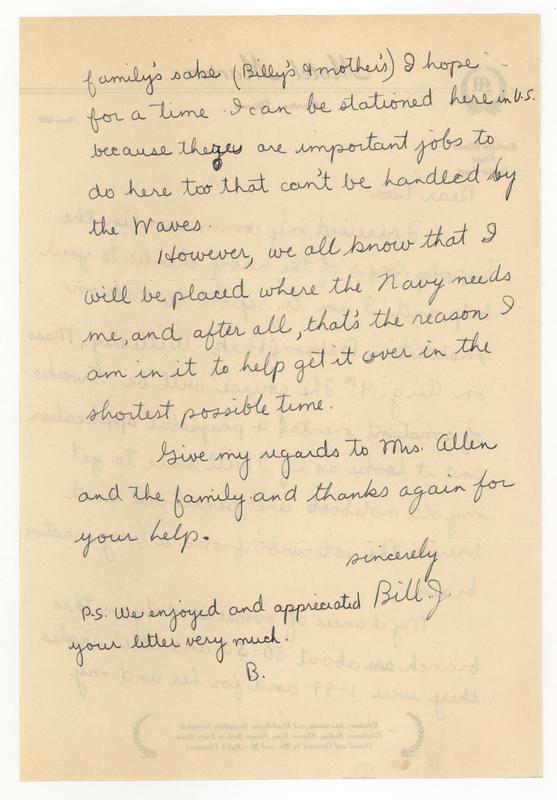 family's sake (Billy's & mother's) I hope
for a time I can be stationed here in U.S.
because there are important jobs to
do here too that can't be handled by
the Waves.
However, we all know that I
will be placed where the Navy needs
me, and after all, that's the reason I
am in it to help get it over in the
shortest possible time.
Give my regards to Mrs. Allen
and the family and thanks again for
your help.
sincerely
Bill J.
P.S. We enjoyed and appreciated
your letter very much.
B.